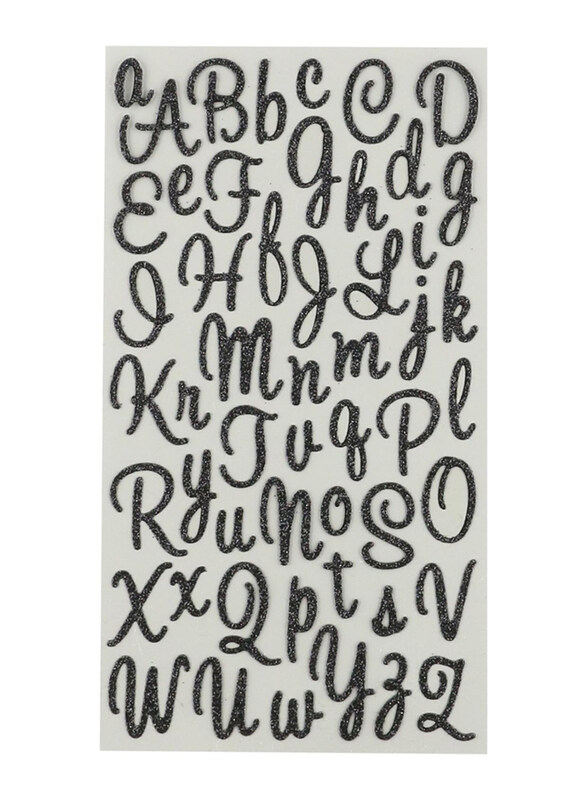 a A B b c C D
E e F G h d g
I H f J L i j k
K r M n m l
T v q P
R y u N o S O
X x Q p t s V
W U w Y z Z